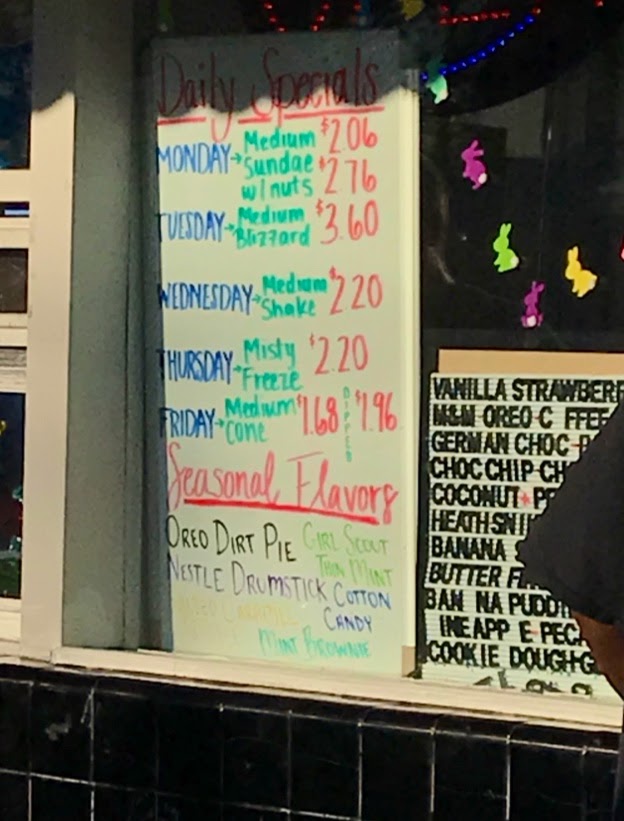 Daily Specials
MONDAY→ Medium $2.06
Sundae
w/nuts $2.76
TUESDAY→ Medium Blizzard $3.60
WEDNESDAY→ Medium Shake $2.20
THURSDAY→ Misty Freeze $2.20
FRIDAY→ Medium Cone $1.68 DIPPED $1.96
Seasonal Flavors
OREO DIRT PIE
GIRL SCOUT
THIN MINT
NESTLE DRUMSTICK
COTTON
CANDY
CARAMEL
MINT BROWNIE
VANILLA STRAWBERR
M&M OREO C FFEE
GERMAN CHOC
CHOC CHIP CH
COCONUT
HEATH SNI
BANANA
BUTTER F
BAN NA PUDDI
INEAPP E PEC
COOKIE DOUGH G